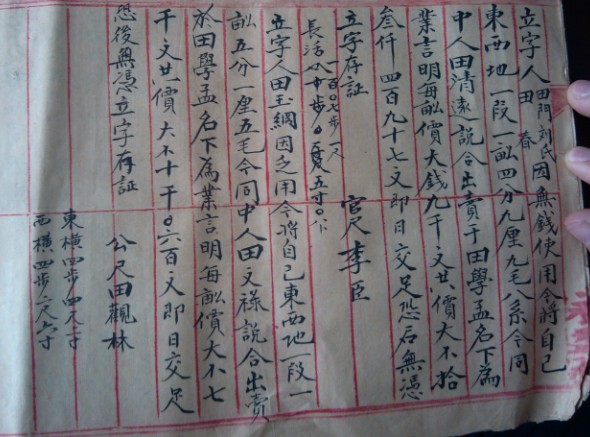 立字人田門刘氏田春因無錢使用今將自己
東西地一段一畝四分九厘九毛八系今同
中人田清遠說合出賣于田學孟名下為
業言明每畝價大錢九千文共價大不拾
叁仟四百九十七文即日交足恐后無憑
立字存証 官尺李臣
長活
立字人田玉綱因乏用今將自己東西地一段一
畝五分一厘五毛今同中人田文祿說合出賣
於田學孟名下為業言明每畝價大不七
千文共價大不十千〇六百文即日交足
恐後無憑立字存証
公尺田觀林
東橫四步四尺二寸
西橫四步二尺六寸